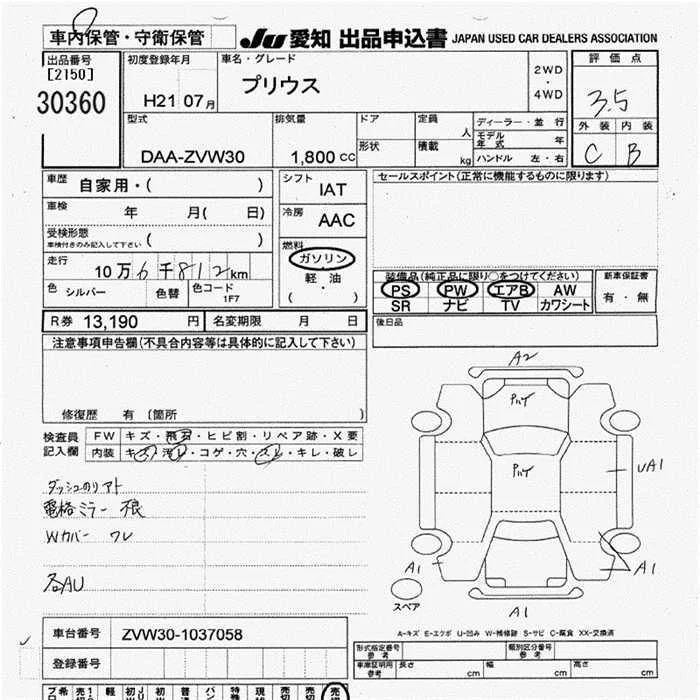 車内保管・守衛保管
JU 愛知 出品申込書 JAPAN USED CAR DEALERS ASSOCIATION
出品番号
[2150]
30360
初度登録年月
H21 07月
車名・グレード
プリウス
2WD
・
4WD
評価点
3.5
外装 内装
C B
型式
DAA-ZVW30
排気量
1,800 cc
ドア
形状
定員
人
積載
kg
ディーラー・並行
モデル年式 年
ハンドル 左・右
車歴 自家用・( )
車検 年 月( 日)
受検形態
車検付きのみ記入して下さい ( )
走行 10万6千812km
色 シルバー 色替 色コード 1F7
シフト IAT
冷房 AAC
燃料
ガソリン
軽・油
( )
セールスポイント(正常に機能するものに限ります)
装備品(純正品に限り○をつけてください)
PS PW エアB AW
SR ナビ TV カワシート
新車保証書
有・無
後日品
R券 13,190 円 名変期限 月 日
注意事項申告欄(不具合内容等は具体的に記入して下さい)
修復歴 有 〔箇所 〕
検査員
記入欄
FW キズ・飛石・ヒビ割・リペア跡・X要
内装 キズ・汚レ・コゲ・穴・スレ・キレ・破レ
ダッシュのリアト
電格ミラー 不良
Wカバー ワレ
各AU
A2
UA1
A1
A1
A1
スペア
A-キズ E-エクボ U-凹み W-補修跡 S-サビ C-腐食 XX-交換済
車台番号 ZVW30-1037058
登録番号
形式指定番号
参考
類別区分番号
参考
車庫証明用
参考
長さ cm 幅 cm 高さ cm